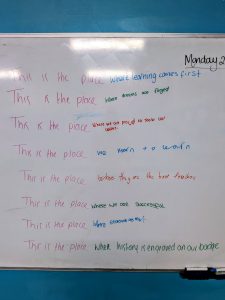 Monday 2
This is the place where learning comes first
This is the place where dreams are forged
This is the place where we can
This is the place we learn to
This is the place before they are the
This is the place where we are successful
This is the place where
This is the place when history is engraved on our badge